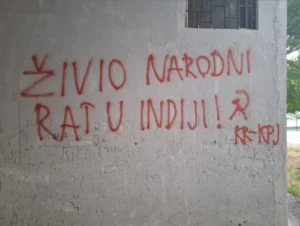 ŽIVIO NARODNI
RAT U INDIJI! ☭
KR-KPJ